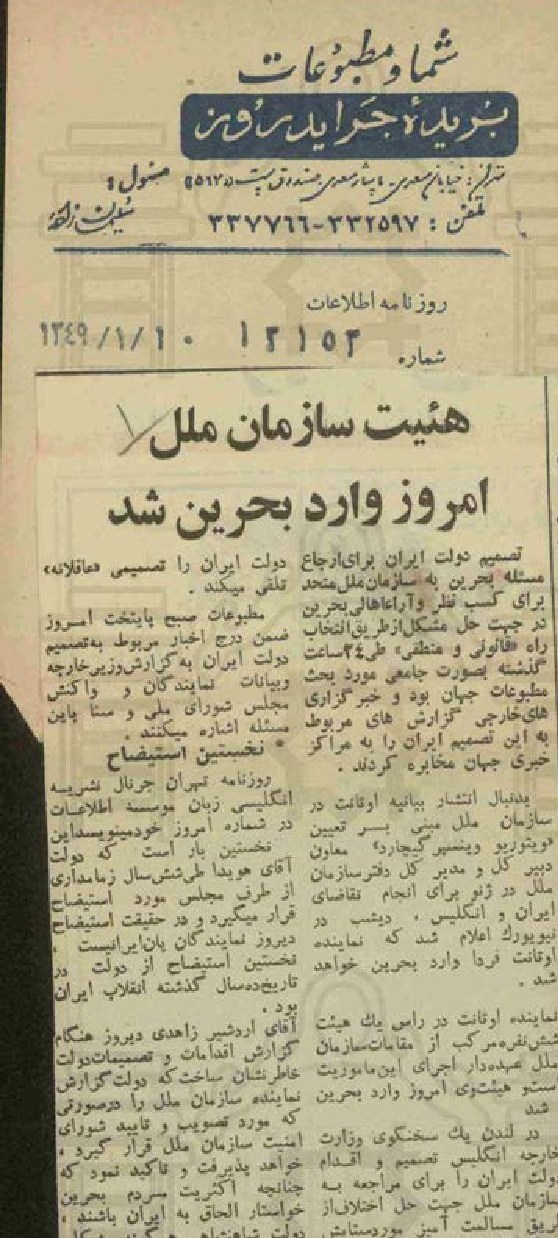 شما و مطبوعات
بریده جراید روز
تهران: خیابان سعدی -
مسئول:
تلفن: ۳۳۲۵۹۷-۳۳۷۷۶۶
روزنامه اطلاعات
شماره ۱۳۱۵۲ ۱۳۴۹/۱/۱۰
هئیت سازمان ملل
امروز وارد بحرین شد
تصمیم دولت ایران برای ارجاع
مسئله بحرین به سازمان ملل متحد
برای کسب نظر و آراء اهالی بحرین
در جهت حل مشکل از طریق انتخاب
راه «قانونی و منطقی» طی ۲۴ ساعت
گذشته بصورت جامعی مورد بحث
مطبوعات جهان بود و خبرگزاری
های خارجی گزارش های مربوط
به این تصمیم ایران را به مراکز
خبری جهان مخابره کردند .
بدنبال انتشار بیانیه اوتانت در
سازمان ملل مبنی بر تعیین
«ویتوریو وینسپرگیچارد» معاون
دبیر کل و مدیر کل دفتر سازمان
ملل در ژنو برای انجام تقاضای
ایران و انگلیس ، دیشب در
نیویورک اعلام شد که نماینده
اوتانت فردا وارد بحرین خواهد
شد .
نماینده اوتانت در راس یک هیئت
شش نفره مرکب از مقامات سازمان
ملل عهده‌دار اجرای این ماموریت
است و هیئت وی امروز وارد بحرین
شد
در لندن یک سخنگوی وزارت
خارجه انگلیس تصمیم و اقدام
دولت ایران را برای مراجعه به
سازمان ملل جهت حل اختلاف از
طریق مسالمت آمیز
دولت ایران را تصمیمی «عاقلانه»
تلقی میکند .
مطبوعات صبح پایتخت امروز
ضمن درج اخبار مربوط به تصمیم
دولت ایران به گزارش وزیر خارجه
وبیانات نمایندگان و واکنش
مجلس شورای ملی و سنا باین
مسئله اشاره میکنند .
* نخستین استیضاح
روزنامه تهران جرنال نشریه
انگلیسی زبان موسسه اطلاعات
در شماره امروز خود مینویسد این
نخستین بار است که دولت
آقای هویدا طی شش سال زمامداری
از طرف مجلس مورد استیضاح
قرار میگیرد و در حقیقت استیضاح
دیروز نمایندگان پان ایرانیست ،
نخستین استیضاح از دولت در
تاریخ ده سال گذشته انقلاب ایران
بود .
آقای اردشیر زاهدی دیروز هنگام
گزارش اقدامات و تصمیمات دولت
خاطرنشان ساخت که دولت گزارش
نماینده سازمان ملل را در صورتی
که مورد تصویب و تایید شورای
امنیت سازمان ملل قرار گیرد ،
خواهد پذیرفت و تاکید نمود که
چنانچه اکثریت مردم بحرین
خواستار الحاق به ایران باشند ،
دولت شاهنشاهی